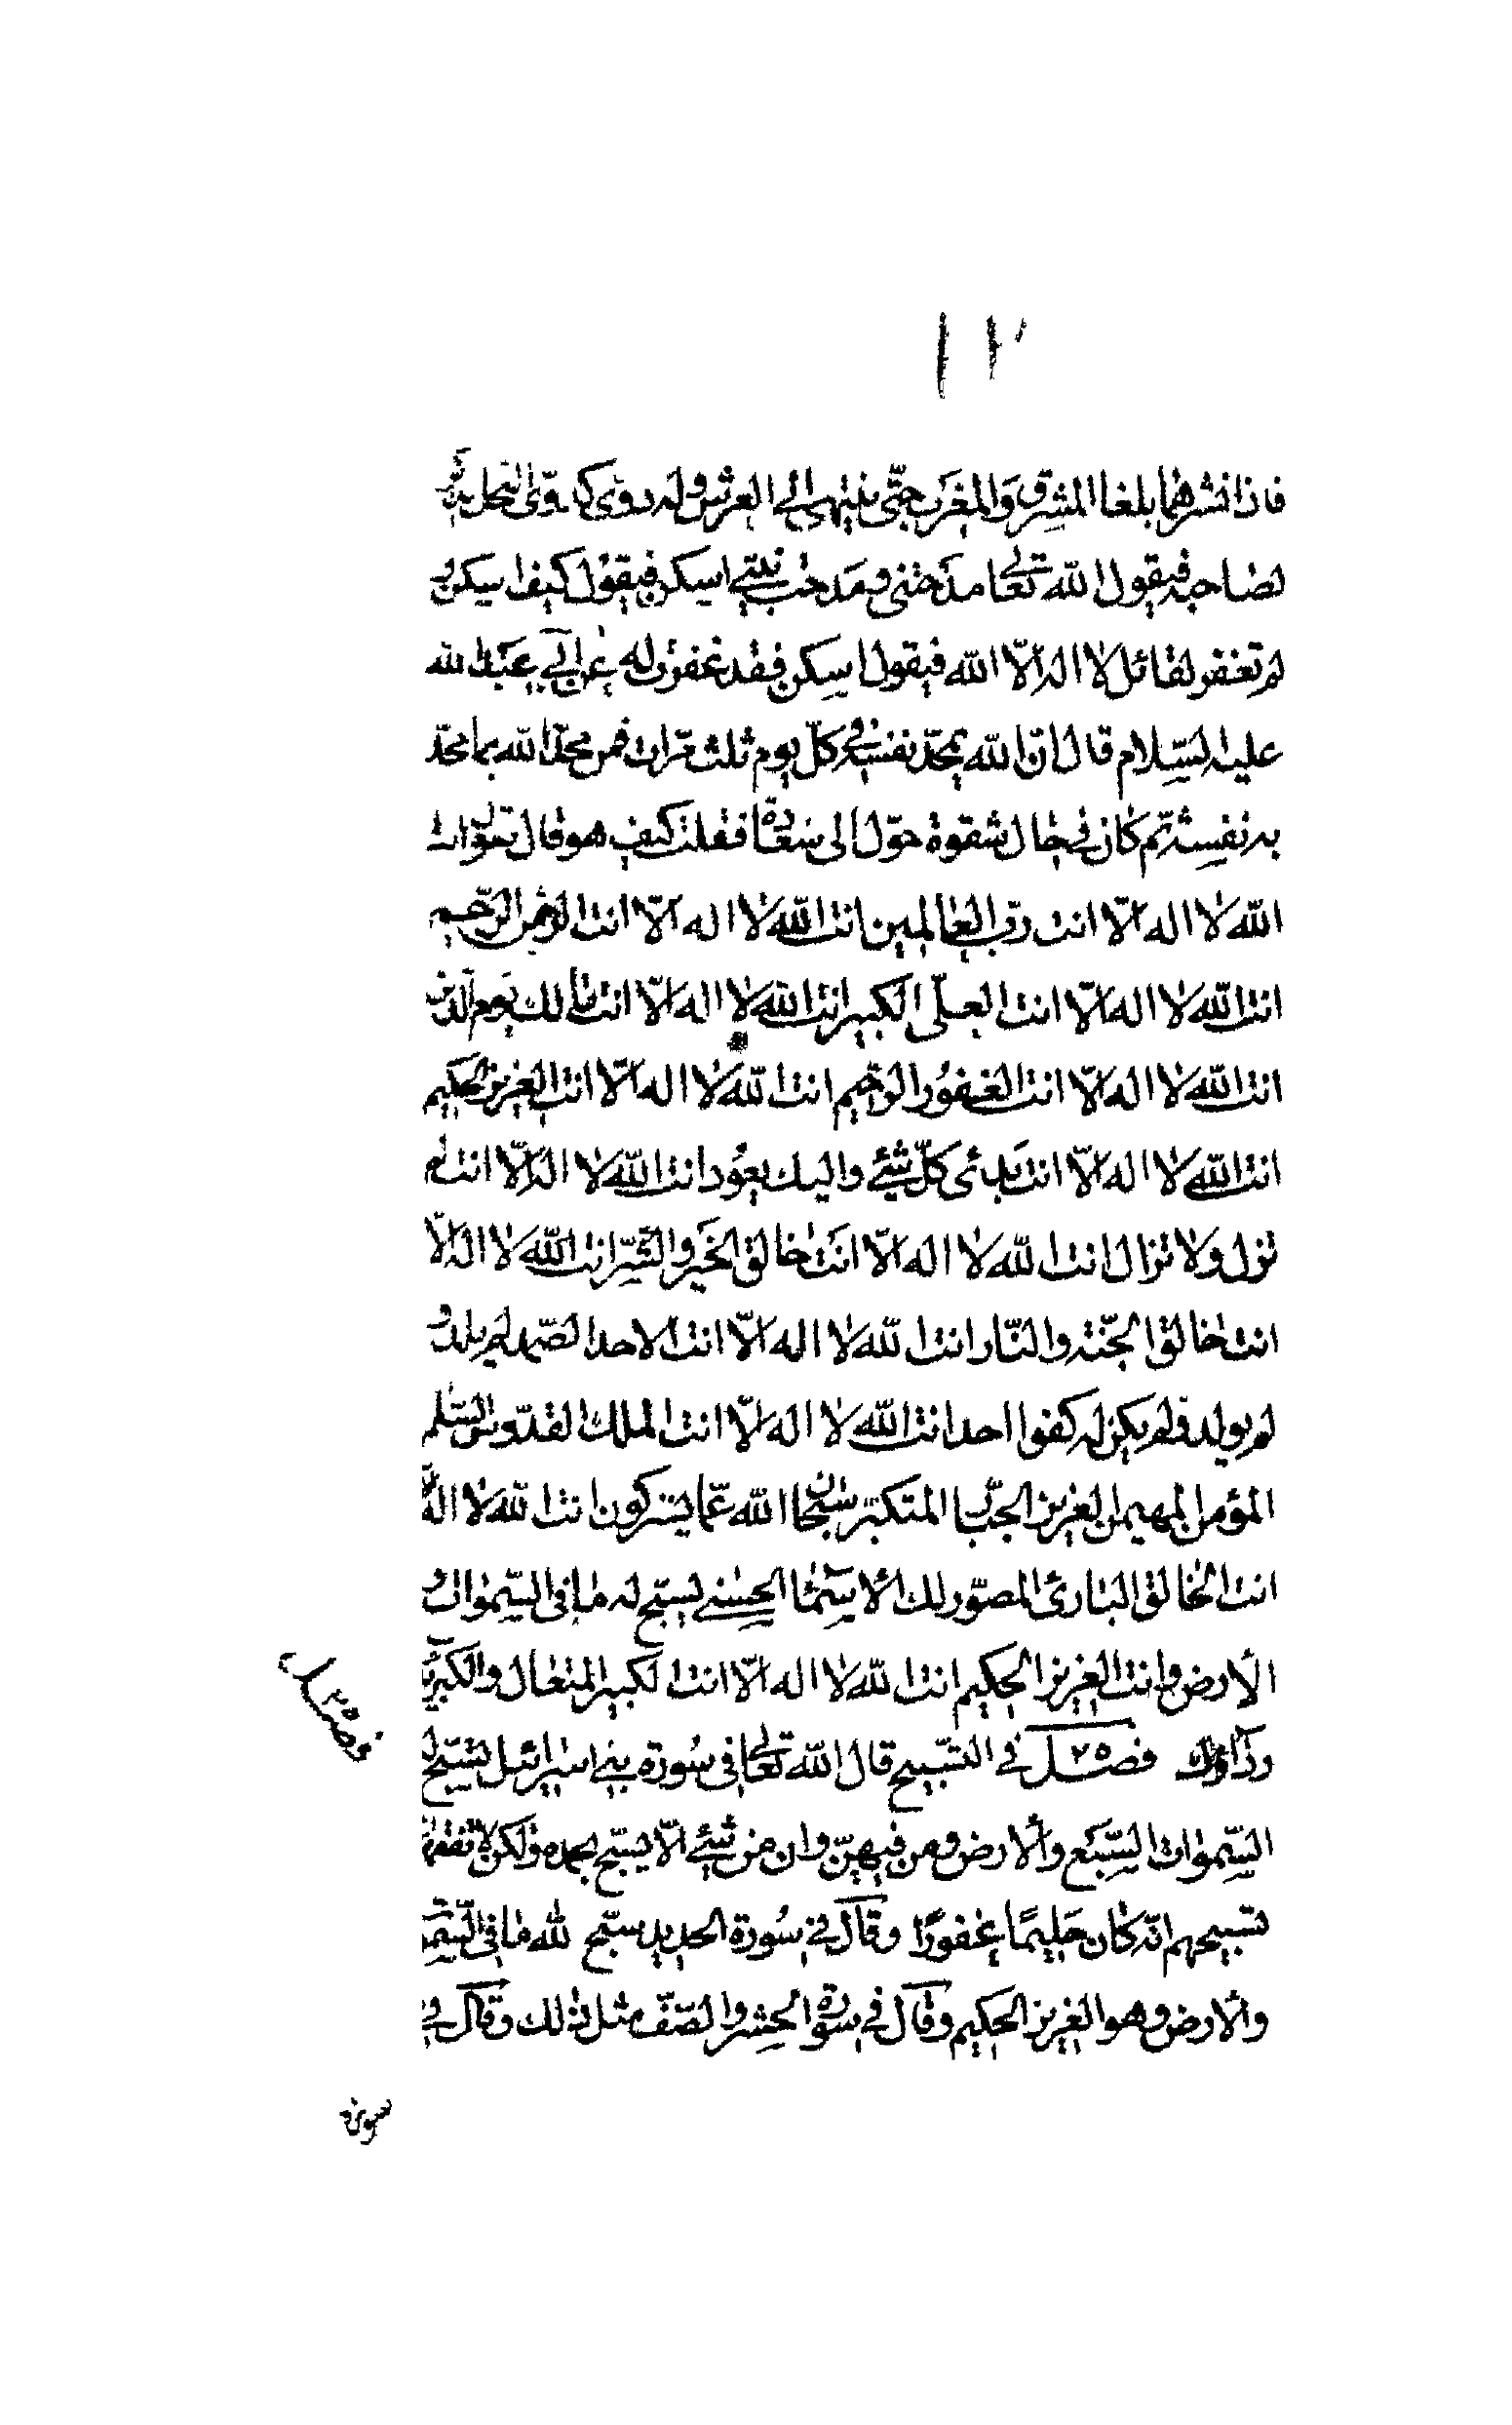 فاذا نشرهما بلغا المشرق والمغرب حتّى ينتهى الى العرش وله دوىّ كدوىّ النحل يذكر
لصاحبه فيقول الله تعالى مدحتنى ومدحت نبيّى اسكن فيقول كيف اسكن و
لم تغفر لقائل لا اله الّا الله فيقول اسكن فقد غفرت له عن ابى عبد الله
عليه السّلام قال انّ الله يمجّد نفسه فى كلّ يوم ثلث مرّات فمن مجّد الله بما مجّد
به نفسه ثمّ كان فى حال شقوة حوّل الى سعادة فقلت كيف هو قال تقول انت
الله لا اله الّا انت ربّ العالمين انت الله لا اله الّا انت الرّحمن الرّحيم
انت الله لا اله الّا انت العلىّ الكبير انت الله لا اله الّا انت مالك يوم الدّين
انت الله لا اله الّا انت الغفور الرّحيم انت الله لا اله الّا انت العزيز الحكيم
انت الله لا اله الّا انت بدئ كلّ شىء واليك يعود انت الله لا اله الّا انت لم
تزل ولا تزال انت الله لا اله الّا انت خالق الخير والشّرّ انت الله لا اله الّا
انت خالق الجنّة والنّار انت الله لا اله الّا انت الاحد الصّمد لم يلد و
لم يولد ولم يكن له كفوا احد انت الله لا اله الّا انت الملك القدّوس السّلم
المؤمن المهيمن العزيز الجبّار المتكبّر سبحان الله عمّا يشركون انت الله لا اله الّا
انت الخالق البارئ المصوّر لك الاسماء الحسنى يسبّح له ما فى السّموات و
الارض وانت العزيز الحكيم انت الله لا اله الّا انت الكبير المتعال والكبرياء
رداؤك فصل ٢٥ فى التّسبيح قال الله تعالى فى سورة بنى اسرائيل تسبّح له
السّموات السّبع والارض ومن فيهنّ وان من شىء الّا يسبّح بحمده ولكن لا تفقهون
تسبيحهم انّه كان حليمًا غفورًا وقال فى سورة الحديد سبّح لله ما فى السّموات
والارض وهو العزيز الحكيم وقال فى سورة الحشر والصّفّ مثل ذلك وقال فى
فصل ٢٥
سورة